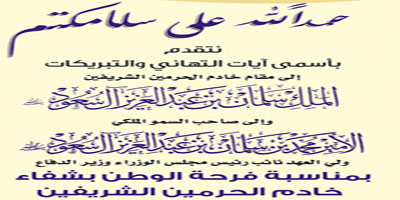 حمداً لله على سلامتكم
نتقدم
بأسمى آيات التهاني والتبريكات
إلى مقام خادم الحرمين الشريفين
الملك سلمان بن عبدالعزيز آل سعود
وإلى صاحب السمو الملكي
الأمير محمد بن سلمان بن عبدالعزيز آل سعود
ولي العهد نائب رئيس مجلس الوزراء وزير الدفاع
بمناسبة فرحة الوطن بشفاء
خادم الحرمين الشريفين